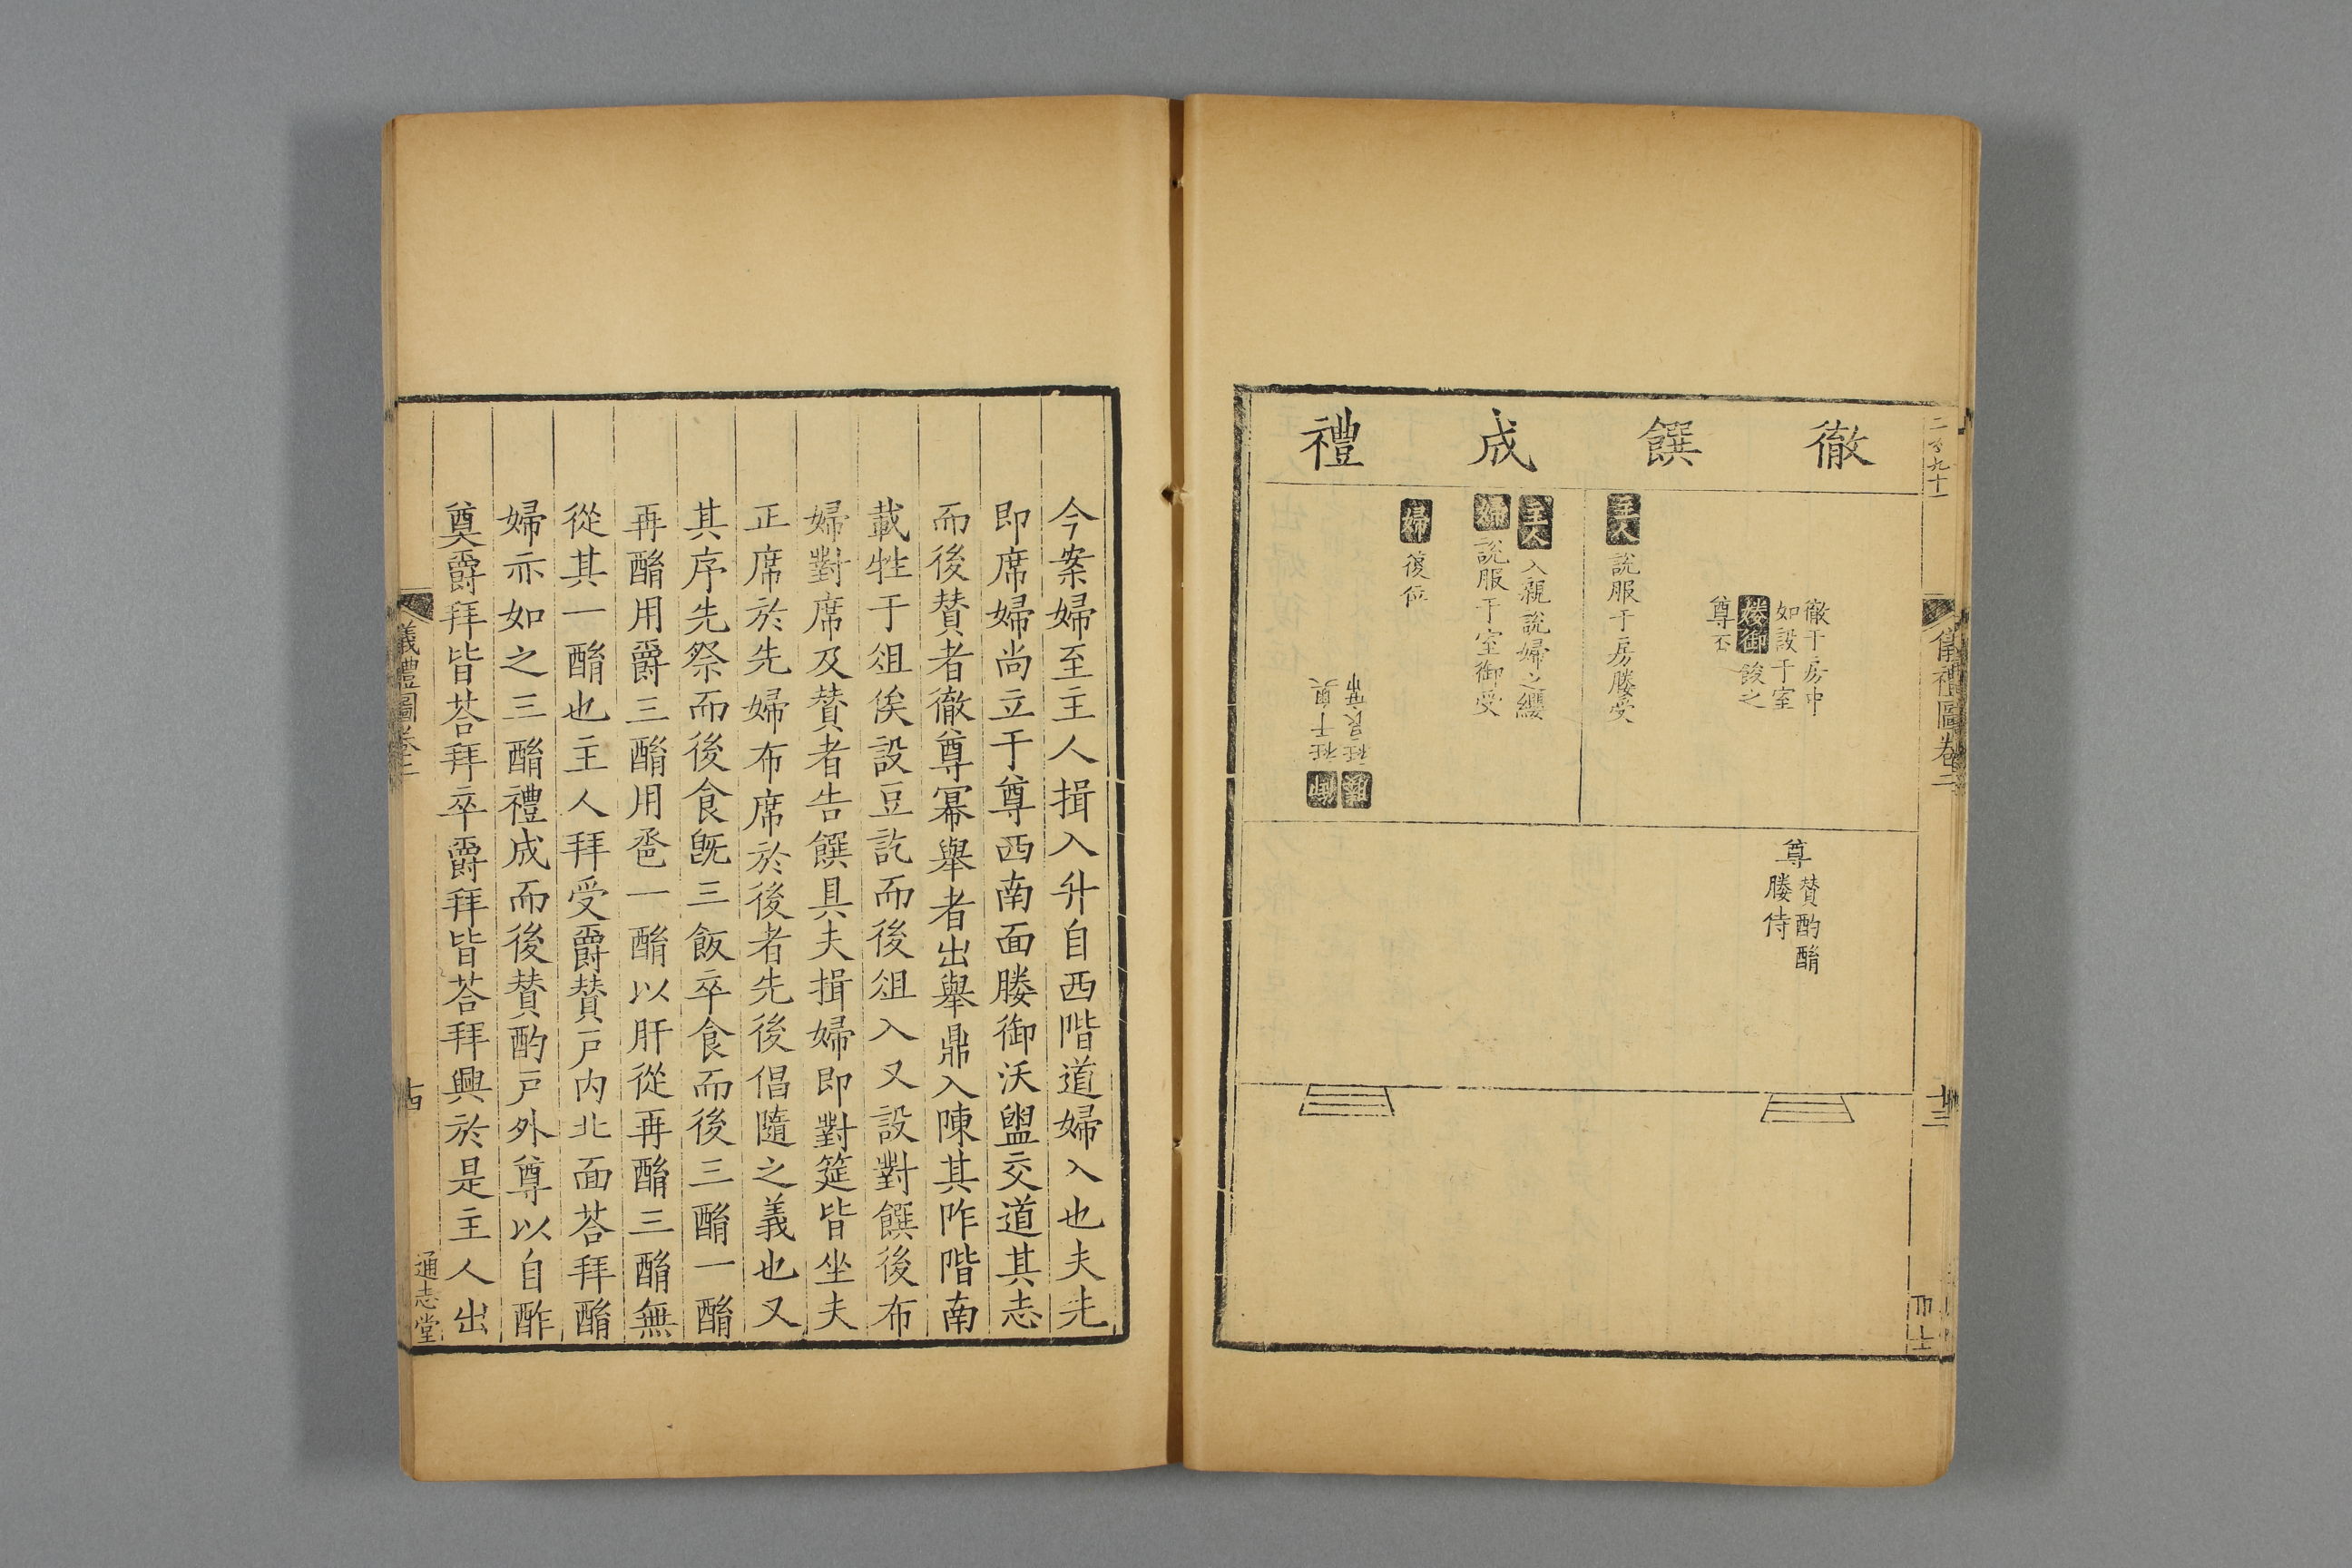 徹饌成禮
徹于房中
如設于室
媵御餕之
尊否
主人說服于房媵受
主人入親說婦之纓
婦說服于室御受
婦復位
媵衽良席
御衽于奧
尊
贊酌酳
媵侍
儀禮圖卷二
十三
今案婦至主人揖入升自西階道婦入也夫先
即席婦尚立于尊西南面媵御沃盥交道其志
而後贊者徹尊冪舉者出舉鼎入陳其阼階南
載牲于俎俟設豆訖而後俎入又設對饌後布
婦對席及贊者告饌具夫揖婦即對筵皆坐夫
正席於先婦布席於後者先後倡隨之義也又
其序先祭而後食旣三飯卒食而後三酳一酳
再酳用爵三酳用巹一酳以肝從再酳三酳無
從其一酳也主人拜受爵贊戸内北面荅拜酳
婦亦如之三酳禮成而後贊酌戸外尊以自酢
奠爵拜皆荅拜卒爵拜皆荅拜興於是主人出
儀禮圖卷二
十四
通志堂